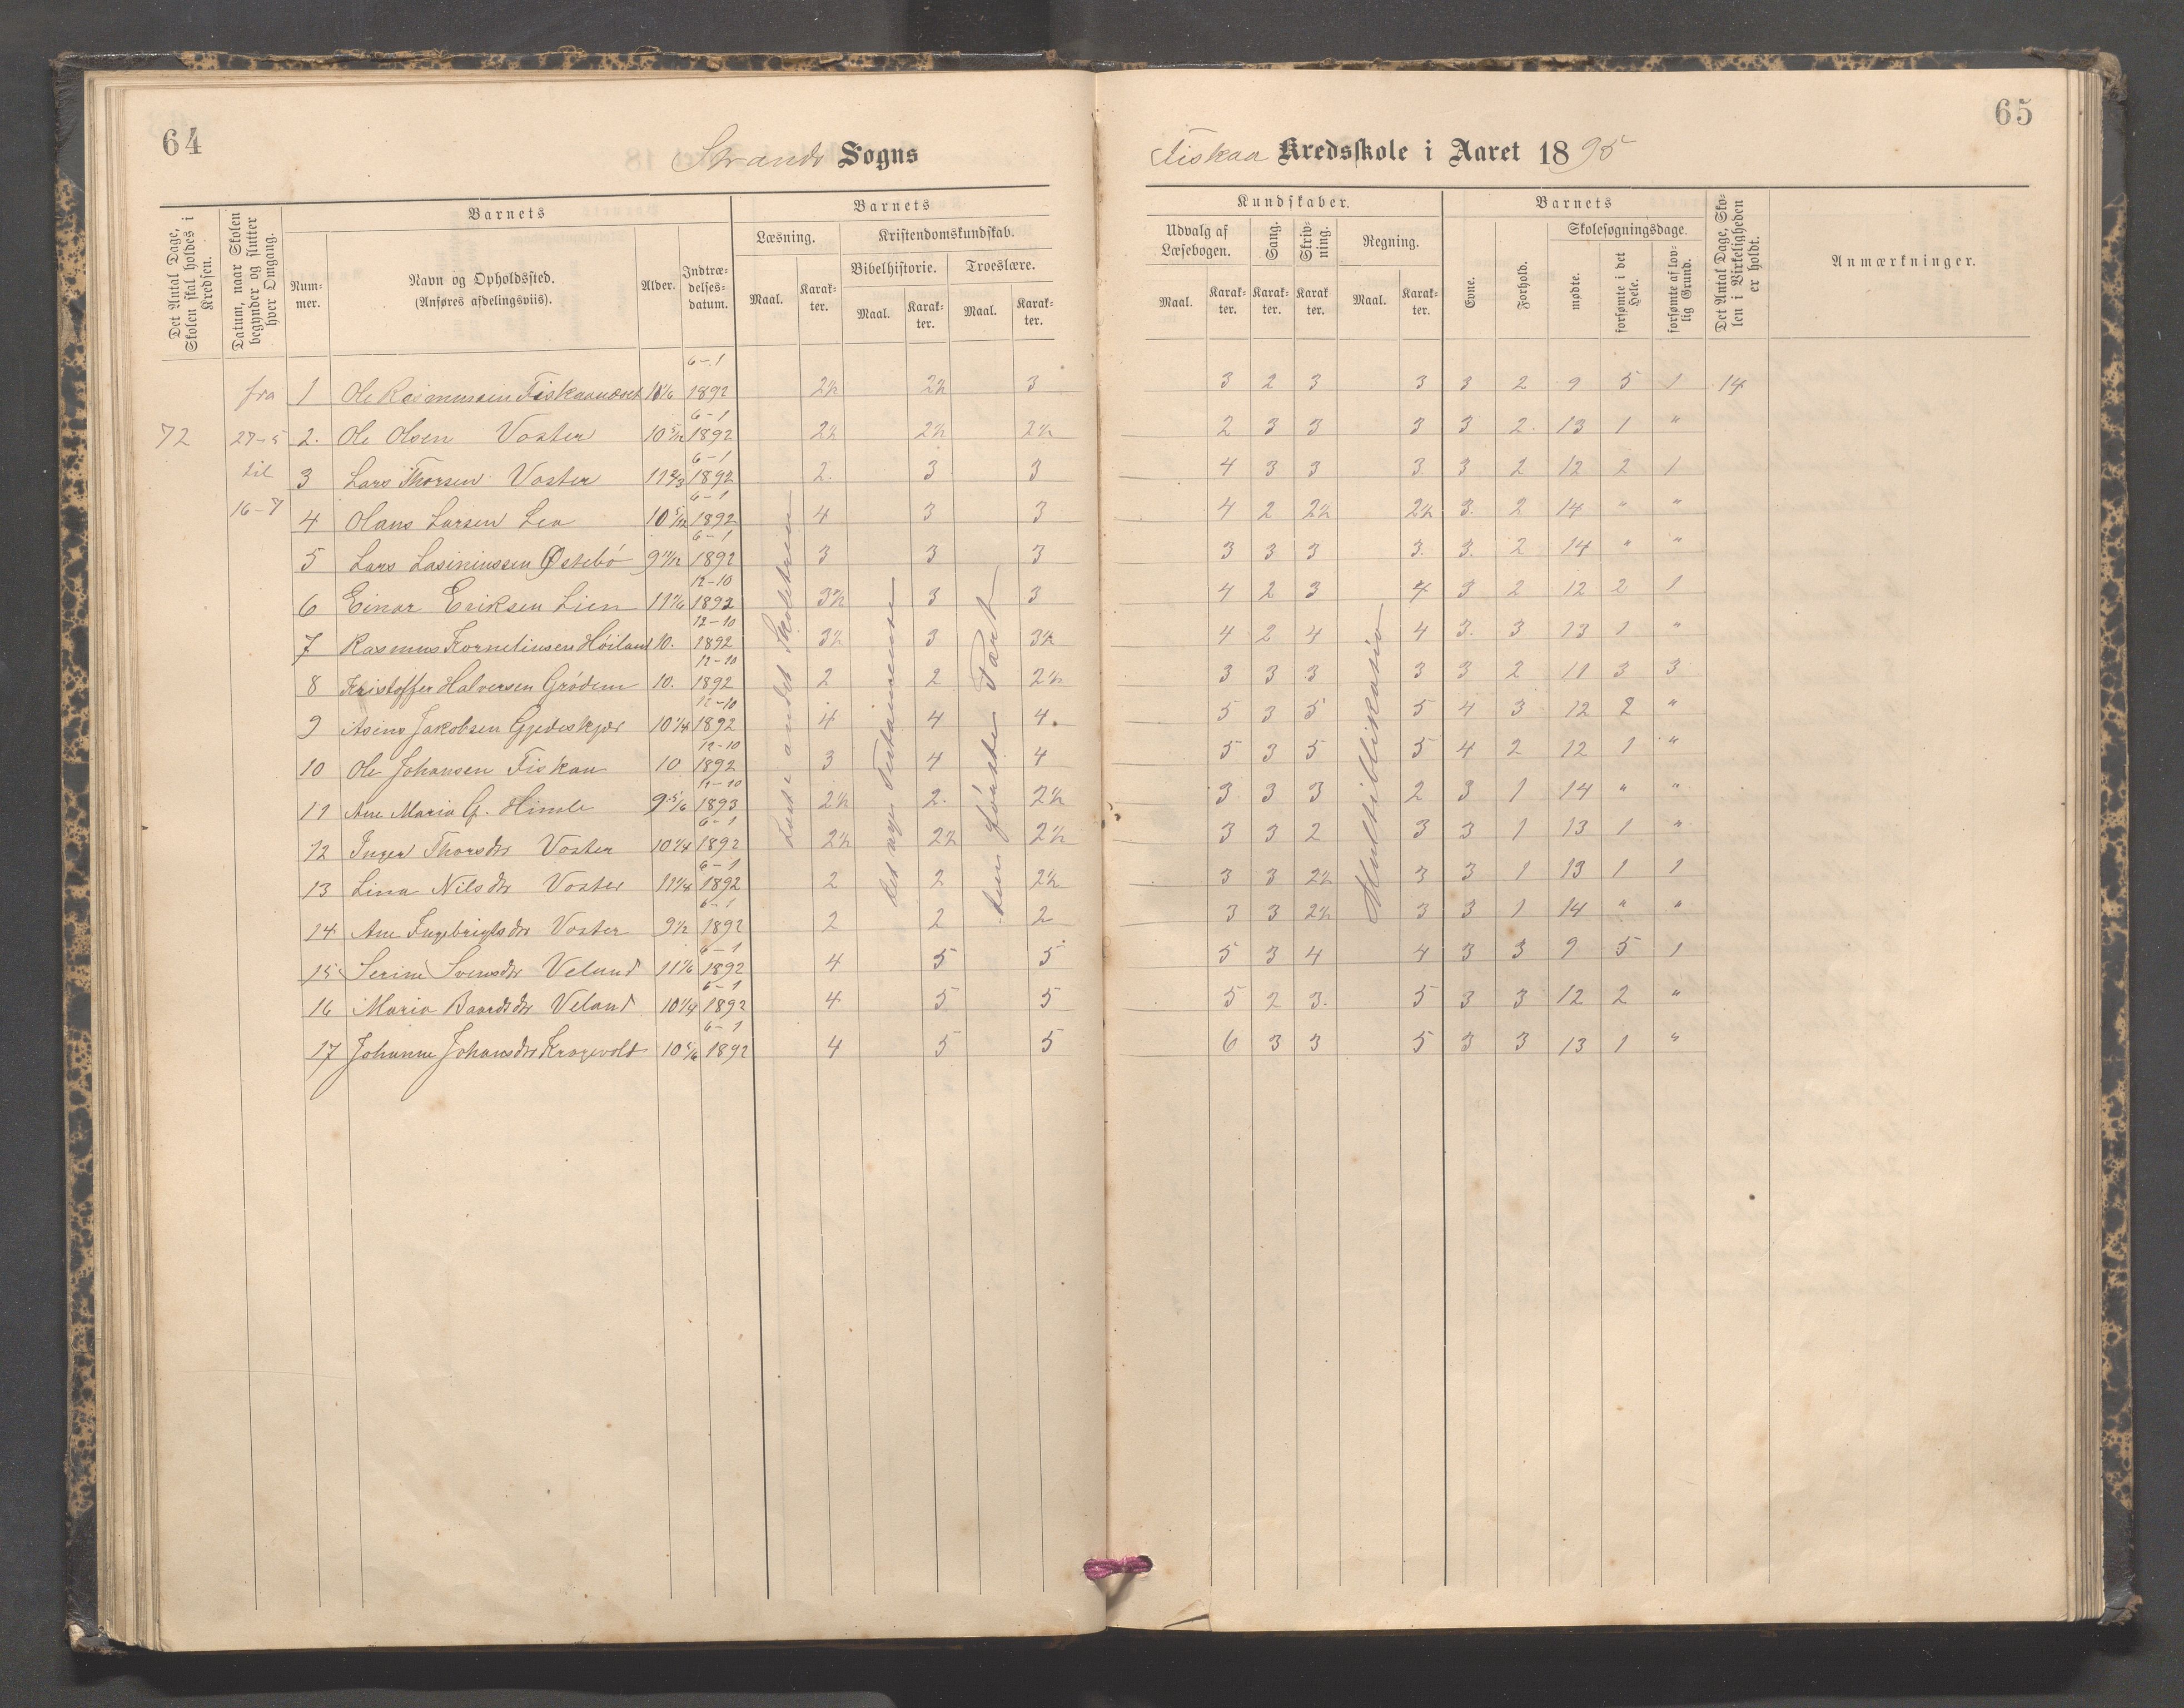 64
65
Strands Sogns
Fiskaa Kredsskole i Aaret 1895
Det Antal Dage, Skolen skal holdes i Kredsen.
Datum, naar Skolen begynder og slutter hver Omgang.
Barnets
Num-
mer.
Navn og Opholdssted.
(Anføres afdelingsviis).
Alder.
Indtræ-
delses-
datum.
Barnets
Læsning.
Kristendomskundskab.
Bibelhistorie.
Troeslære.
Maal.
Karak-
ter.
Maal.
Karak-
ter.
Maal.
Karak-
ter.
Kundskaber.
Udvalg af
Læsebogen.
Sang.
Skriv-
ning.
Regning.
Maal.
Karak-
ter.
Karak-
ter.
Karak
ter.
Maal.
Karak-
ter.
Barnets
Evne.
Forhold.
Skolesøgningsdage.
mødte.
forsømte i det Hele.
forsømte af lov-
lig Grund.
Det Antal Dage, Sko-
len i Virkeligheden
er holdt.
Anmærkninger.
72
fra
27-5
til
16-7
1 Ole Rasmussen 11 1/6 6-1 1892 2½ 2½ 3 3 2 3 3 3 2 9 5 1 14
2. Ole Olsen Voster 10 5/12 6-1 1892 2½ 2½ 2½ 2 3 3 3 3 2. 13 1 "
3 Lars Thorsen Voster 11 2/3 6-1 1892 2. 3 3 4 3 3 3 3 2 12 2 1
4 Hans Larsen Lea 10 5/12 6-1 1892 4 3 3 4 2 2½ 2½ 3. 2 14 " "
5 Lars Østebö 9 11/12 6-1 1892 3 3 3 3 3 3 3. 3. 2 14 " "
6 Einar Eriksen Lien 11 1/6 12-10 1892 3½ 3 3 4 2 3 4 3 2 12 2 1
7 Rasmus Korneliusen Höiland 10. 12-10 1892 3½ 3 3½ 4 2 4 4 3. 3 13 1 "
8 Kristoffer Halversen Grödem 10. 12-10 1892 2 2 2½ 3 3 3 3 3 2 11 3 3
9 Jakobsen 10 1/4 12-10 1892 4 4 4. 5 3 5 5 4 3 12 2 "
10 Ole Johansen Fiskaa 10 12-10 1892 3 4 4 5 3 5 5 4 2 12 1 "
11 Ane Maria G. Himle 9 5/6 11-10 1893 2½ 2. 2½ 3 3 3 2 3 1 14 " "
12 Inger Thorsdtr Voster 10 1/4 6-1 1892 2½ 2½ 2½ 3 3 2 3 3 1 13 1 "
13 Lina Nilsdtr Voster 11 1/4 6-1 1892 2 2 2½ 3 3 2½ 3 3 1 13 1 1
14 Ane Ingebrigtsdtr Voster 9½ 6-1 1892 2 2 2 3 3 2½ 3 3 1 14 " "
15 Serine Svensdtr Veland 11 1/6 6-1 1892 4 5 5 5 3 4 4 3 3 9 5 1
16 Maria Baardsdtr Veland 10 1/4 6-1 1892 4 5 5 5 2 3. 5 3 3 12 2 "
17 Johanne Johansdtr Kragevold 10 5/6 6-1 1892 4 5 5 6 3 3 5 3 3 13 1 "
andet Skoletrin
Det nye Testamente
den første Part
Multiplikasion